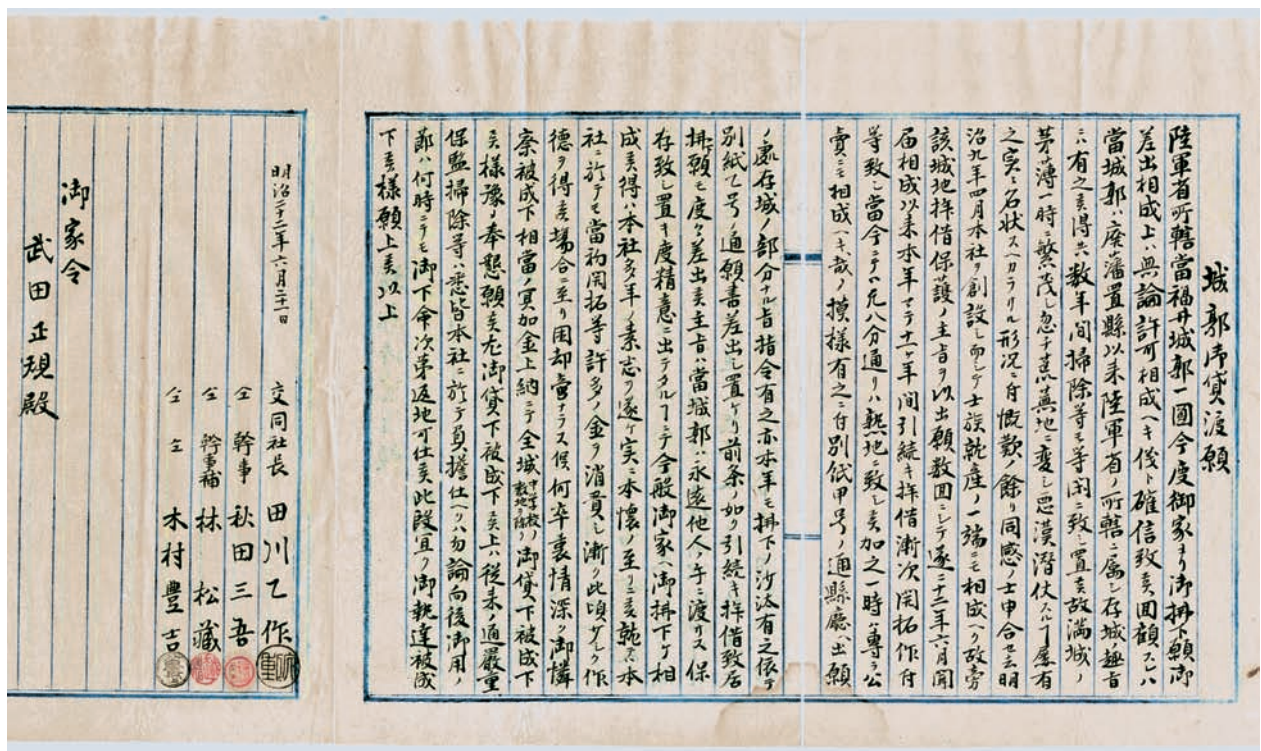 城郭御貸渡願
陸軍省所轄當福井城郭一圓今度御家ヨリ御拂下願御
差出相成上ハ輿論許可相成ヘキ儀ト確信致候回顧スレハ
當城郭ハ廢藩置縣以来陸軍省ノ所轄ニ属シ存城趣旨
ニハ有之候得共数年間掃除等モ等閑ニ致シ置候故満城ノ
茅薄一時ニ繁茂シ忽チ荒蕪地ニ変シ悪漢潜伏スルヿ屡有
之実ニ名状スヘカラサル形況ニ付慨歎ノ餘リ同感ノ士申合セ去明
治九年四月本社ヲ創設シ而シテ士族就産ノ一端ニモ相成ヘク故旁
該城地拝借保護ノ主旨ヲ以出願数囬ニシテ遂ニ十二年六月聞
届相成以来本年マテ十一ヶ年間引続キ拝借漸次開拓作付
等致シ當今ニテハ凡八分通リハ熟地ニ致シ候加之一時ハ專ラ公
賣ニモ相成ヘキ哉ノ摸様有之ニ付別紙甲号ノ通縣廳ヘ出願
ノ處存城ノ部分ナル旨指令有之亦本年モ拂下ノ沙汰有之依テ
別紙乙号ノ通願書差出シ置ケリ前条ノ如ク引続キ拝借致居
拂願モ度々差出候主旨ハ當城郭ハ永遠他人ノ手ニ渡サス保
存致シ置キ度精意ニ出テタルヿニテ今般御家ヘ御拂下ケ相
成候得ハ本社多年ノ素志ヲ遂ケ実ニ本懐ノ至リニ候乾
社ニ於テモ當初開拓等許多ノ金ヲ消費シ漸ク此頃少シク作
徳ヲ得候場合ニ至リ困却啻ナラス候何卒衷情深ク御憐
察被成下相當ノ冥加金上納ニテ全城中学校ノ敷地ヲ除ク御貸下被成下
候様豫メ奉懇願候尤御貸下被成下候上ハ従来ノ通嚴重
保監掃除等ハ悉皆本社ニ於テ負擔仕ヘクハ勿論向後御用ノ
節ハ何時ニテモ御下命次第返地可仕候此段宜ク御執達被成
下候様願上候以上
明治二十二年六月二十一日
交同社長 田川乙作
仝 幹事 秋田三吾
仝 幹事補 林 松藏
仝 仝 木村豊吉
御家令
武田正規殿